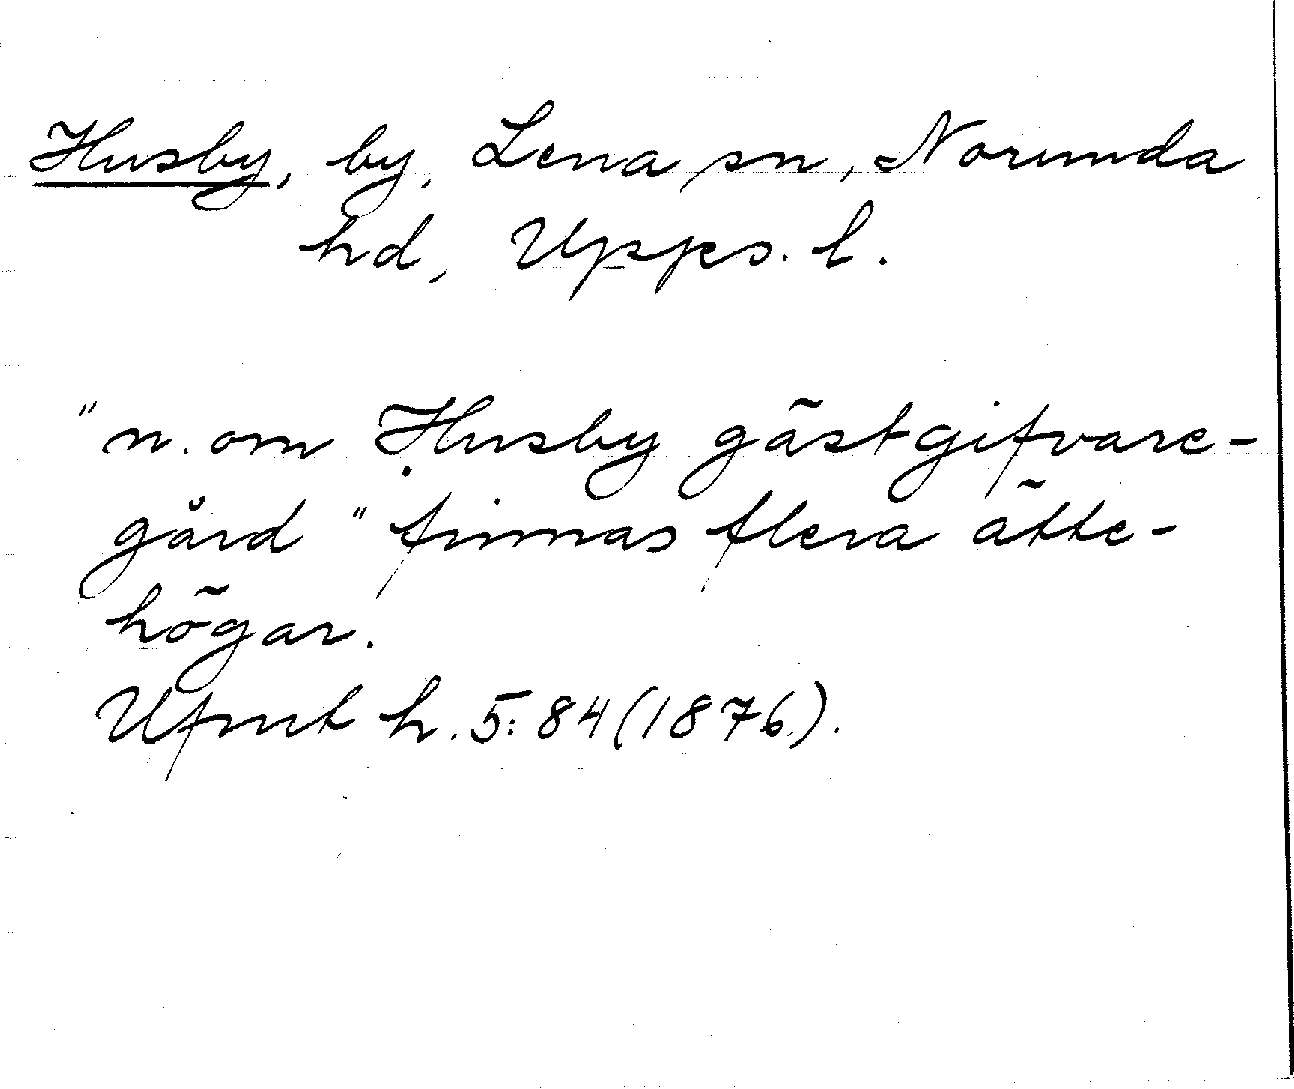 Husby, by, Lena sn, Norunda
hd, Upps. l.
"n. om Husby gästgifvare-
gård" finnas flera ätte-
högar.
Ufmt h. 5: 84 (1876).